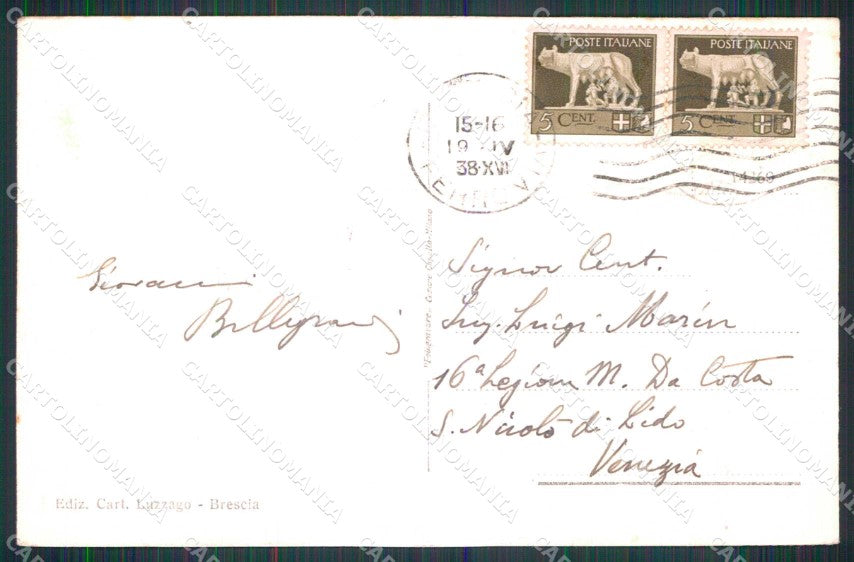 POSTE ITALIANE
5 CENT.
POSTE ITALIANE
5 CENT.
15-16
19 IV
38·XVI
FERROVIA
Signor Cent.
Ing. Luigi Marin
16ª Legione M. Da Costa
S. Nicolò di Lido
Venezia
Giovanni
Ediz. Cart. Luzzago - Brescia
CARTOLINOMANIA